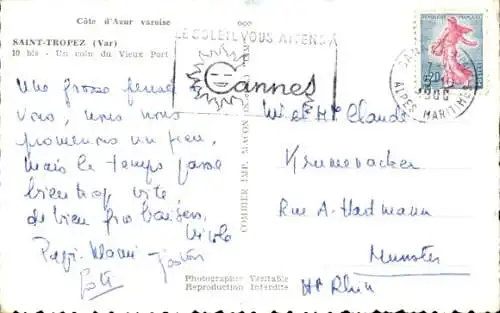 Côte d'Azur varoise
SAINT-TROPEZ (Var)
10 bis - Un coin du Vieux Port
LE SOLEIL VOUS ATTEND À
Cannes
REPUBLIQUE FRANÇAISE
0,20
CANNES
ALPES MARITIMES
Une grosse pensée
vous, nous nous
promenons un peu,
mais le temps passe
bien trop vite
de bien gros baisers
Nicole
Papi-Mami
COMBIER IMP. MACON
M et Mme Claude
Krumenacker
Rue A-Hartmann
Munster
Ht Rhin
Photographie Véritable
Reproduction Interdite